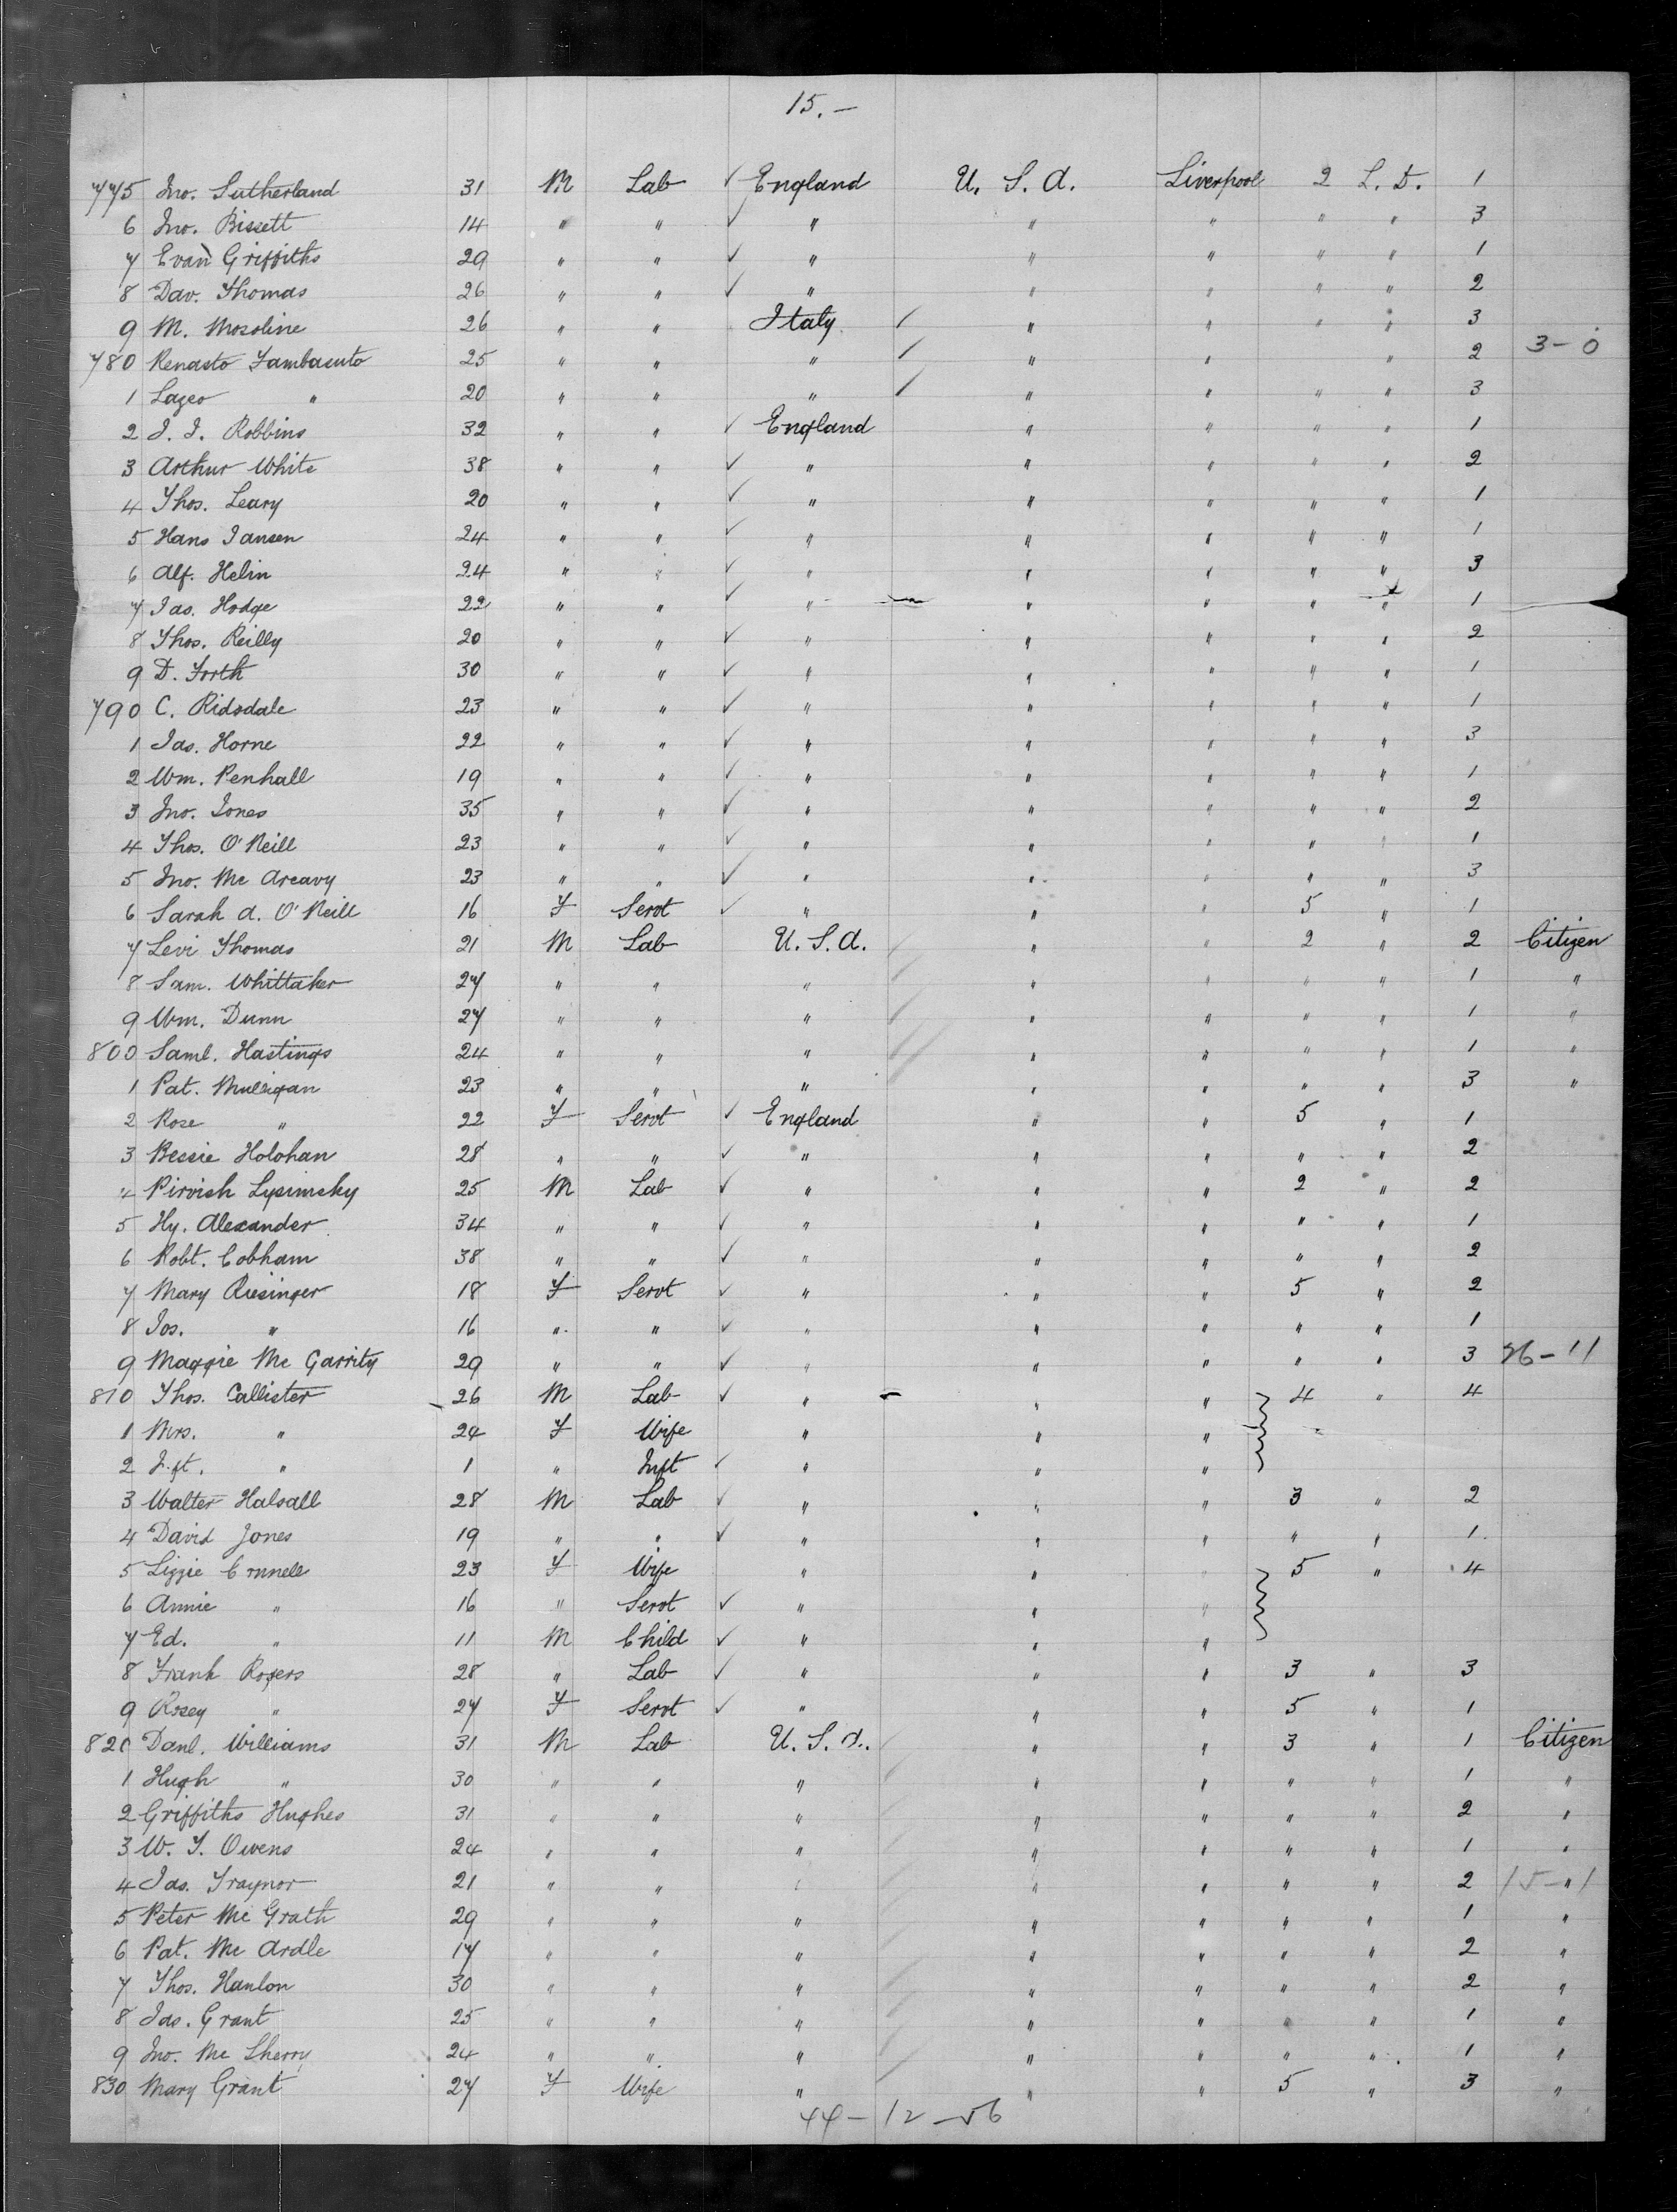 15.-
775 Jno. Sutherland 31 M Lab ✓ England U. S. A. Liverpool 2 L. D. 1
6 Jno. Bissett 14 " " ✓ " " " " " 3
7 Evan Griffiths 29 " " ✓ " " " " " 1
8 Dav. Thomas 26 " " ✓ " " " " " 2
9 M. Mosoline 26 " " Italy ✓ " " " " 3
780 Renasto Zambasuto 25 " " " ✓ " " " 2 3-0
1 Lazeo " 20 " " " ✓ " " " " 3
2 J. J. Robbins 32 " " ✓ England " " " " 1
3 Arthur White 38 " " ✓ " " " " " 2
4 Thos. Leary 20 " " ✓ " " " " " 1
5 Hans Jansen 24 " " ✓ " " " " " 1
6 Alf. Helin 24 " " ✓ " " " " " 3
7 Jas. Hodge 22 " " ✓ " " " " " 1
8 Thos. Reilly 20 " " ✓ " " " " " 2
9 D. Forth 30 " " ✓ " " " " " 1
790 C. Ridsdale 23 " " ✓ " " " " " 1
1 Jas. Horne 22 " " ✓ " " " " " 3
2 Wm. Penhall 19 " " ✓ " " " " " 1
3 Jno. Jones 35 " " ✓ " " " " " 2
4 Thos. O'Neill 23 " " ✓ " " " " " 1
5 Jno. Mc Areavy 23 " " ✓ " " " " " 3
6 Sarah A. O'Neill 16 F Servt ✓ " " " 5 " 1
7 Levi Thomas 21 M Lab U. S. A. " " 2 " 2 Citizen
8 Sam. Whittaker 27 " " " " " " " 1 "
9 Wm. Dunn 27 " " " " " " " 1 "
800 Saml. Hastings 24 " " " " " " " 1 "
1 Pat. Mulligan 23 " " " " " " " 3 "
2 Rose " 22 F Servt ✓ England " " 5 " 1
3 Bessie Holohan 28 " " ✓ " " " " " 2
4 Pirvish Lysimsky 25 M Lab ✓ " " " 2 " 2
5 Hy. Alexander 34 " " ✓ " " " " " 1
6 Robt. Cobham 38 " " ✓ " " " " " 2
7 Mary Riesinger 18 F Servt ✓ " " " 5 " 2
8 Jos. " 16 " " ✓ " " " " " 1
9 Maggie Mc Garrity 29 " " ✓ " " " " " 3 26-11
810 Thos. Callister 26 M Lab ✓ " " " 4 " 4
1 Mrs. " 24 F Wife " " "
2 Inft. " 1 " Inft ✓ " " "
3 Walter Halsall 28 M Lab ✓ " " " 3 " 2
4 David Jones 19 " " ✓ " " " " " 1
5 Lizzie 23 F Wife " " " 5 " 4
6 Annie " 16 " Servt ✓ " " "
7 Ed. " 11 M Child ✓ " " "
8 Frank Rogers 28 " Lab ✓ " " " 3 " 3
9 Rosey " 27 F Servt ✓ " " " 5 " 1
820 Danl. Williams 31 M Lab U. S. A. " " 3 " 1 Citizen
1 Hugh " 30 " " " " " " " 1 "
2 Griffiths Hughes 31 " " " " " " " 2 "
3 W. T. Owens 24 " " " " " " " 1 "
4 Jas. Traynor 21 " " " " " " " 2 15-1 "
5 Peter Mc Grath 29 " " " " " " " 1 "
6 Pat. Mc Ardle 17 " " " " " " " 2 "
7 Thos. Hanlon 30 " " " " " " " 2 "
8 Jas. Grant 25 " " " " " " " 1 "
9 Jno. Mc Sherry 24 " " " " " " " 1 "
830 Mary Grant 27 F Wife " " " 5 " 3 "
44-12-56